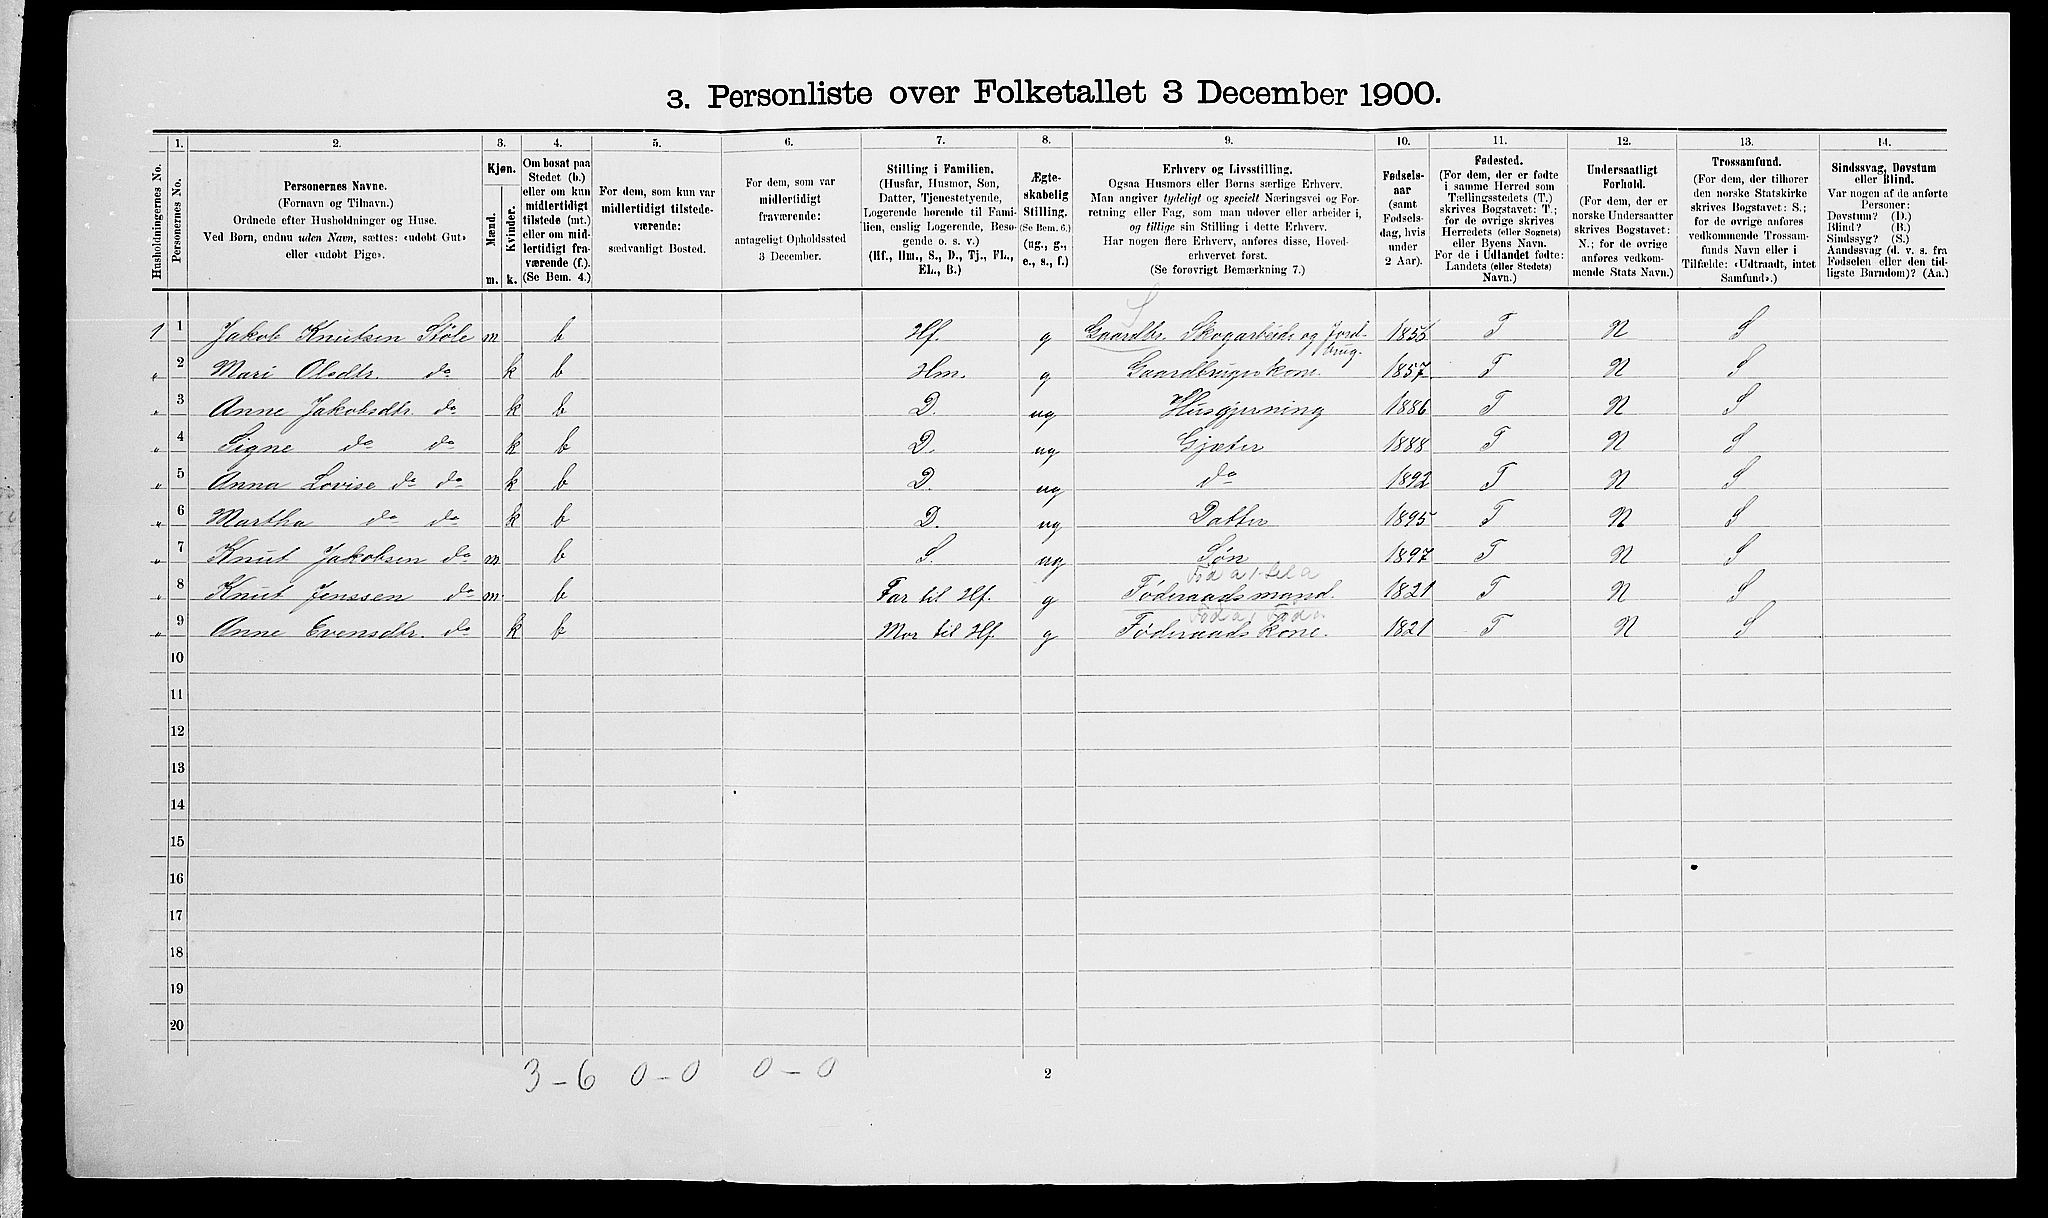 3. Personliste over Folketallet 3 December 1900.
Husholdningernes No.
1.
Personernes No.
2.
Personernes Navne.
(Fornavn og Tilnavn.)
Ordnede efter Husholdninger og Huse.
Ved Børn, endnu uden Navn, sættes: «udøbt Gut»
eller «udøbt Pige».
3.
Kjøn.
Mænd.
Kvinder.
m. k.
4.
Om bosat paa
Stedet (b.)
eller om kun
midlertidigt
tilstede (mt.)
eller om mid-
lertidigt fra-
værende (f.).
(Se Bem. 4.)
5.
For dem, som kun var
midlertidigt tilstede-
værende:
sædvanligt Bosted.
6.
For dem, som var
midlertidigt
fraværende:
antageligt Opholdssted
3 December.
7.
Stilling i Familien.
(Husfar, Husmor, Søn,
Datter, Tjenestetyende,
Logerende hørende til Fami-
lien, enslig Logerende, Besø-
gende o. s. v.)
(Hf., Hm., S., D., Tj., FL.,
EL., B.)
8.
Ægte-
skabelig
Stilling.
(Se Bem. 6.)
(ug., g.,
e., s., f.)
9.
Erhverv og Livsstilling.
Ogsaa Husmors eller Børns særlige Erhverv.
Man angiver tydeligt og specielt Næringsvei og For-
retning eller Fag, som man udøver eller arbeider i,
og tillige sin Stilling i dette Erhverv.
Har nogen flere Erhverv, anføres disse, Hoved-
erhvervet først.
(Se forøvrigt Bemærkning 7.)
10.
Fødsels-
aar
(samt
Fødsels-
dag, hvis
under
2 Aar).
11.
Fødested.
(For dem, der er fødte
i samme Herred som
Tællingsstedets (T.)
skrives Bogstavet: T.;
for de øvrige skrives
Herredets (eller Sognets)
eller Byens Navn.
For de i Udlandet fødte:
Landets (eller Stedets)
Navn.)
12.
Undersaatligt
Forhold.
(For dem, der er
norske Undersaatter
skrives Bogstavet:
N.; for de øvrige
anføres vedkom-
mende Stats Navn.)
13.
Trossamfund.
(For dem, der tilhører
den norske Statskirke
skrives Bogstavet: S.;
for de øvrige anføres
vedkommende Trossam-
funds Navn eller i
Tilfælde: «Udtraadt, intet
Samfund».)
14.
Sindssvag, Døvstum
eller Blind.
Var nogen af de anførte
Personer:
Døvstum? (D.)
Blind? (B.)
Sindssyg? (S.)
Aandssvag (d. v. s. fra
Fødselen eller den tid-
ligste Barndom)? (Aa.)
1 1 Jakob Knutsen Støle m b Hf. g Gaardbr. Skogarbeide og Jord-brug. T N S
„ 2 Mari Olsdtr. do k b Hm. g Gaardbruger kone. 1857 T N S
„ 3 Anne Jakobsdtr. do k b D. ug Husgjerning 1886 T N S
„ 4 Signe do do k b D. ug Gjæter 1888 T N S
„ 5 Anna Lovise do do k b D. ug do 1892 T N S
„ 6 Martha do do k b D. ug Datter 1895 T N S
„ 7 Knut Jakobsen do m b S. ug Søn 1897 T N S
„ 8 Knut Jenssen do m. b Far til Hf. g Føderaadsmand. 1821 T N S
„ 9 Anne Evensdtr. do k b Mor til Hf. g Føderaadskone. 1821 T N S
10
11
12
13
14
15
16
17
18
19
20
3-6 0-0 0-0 2